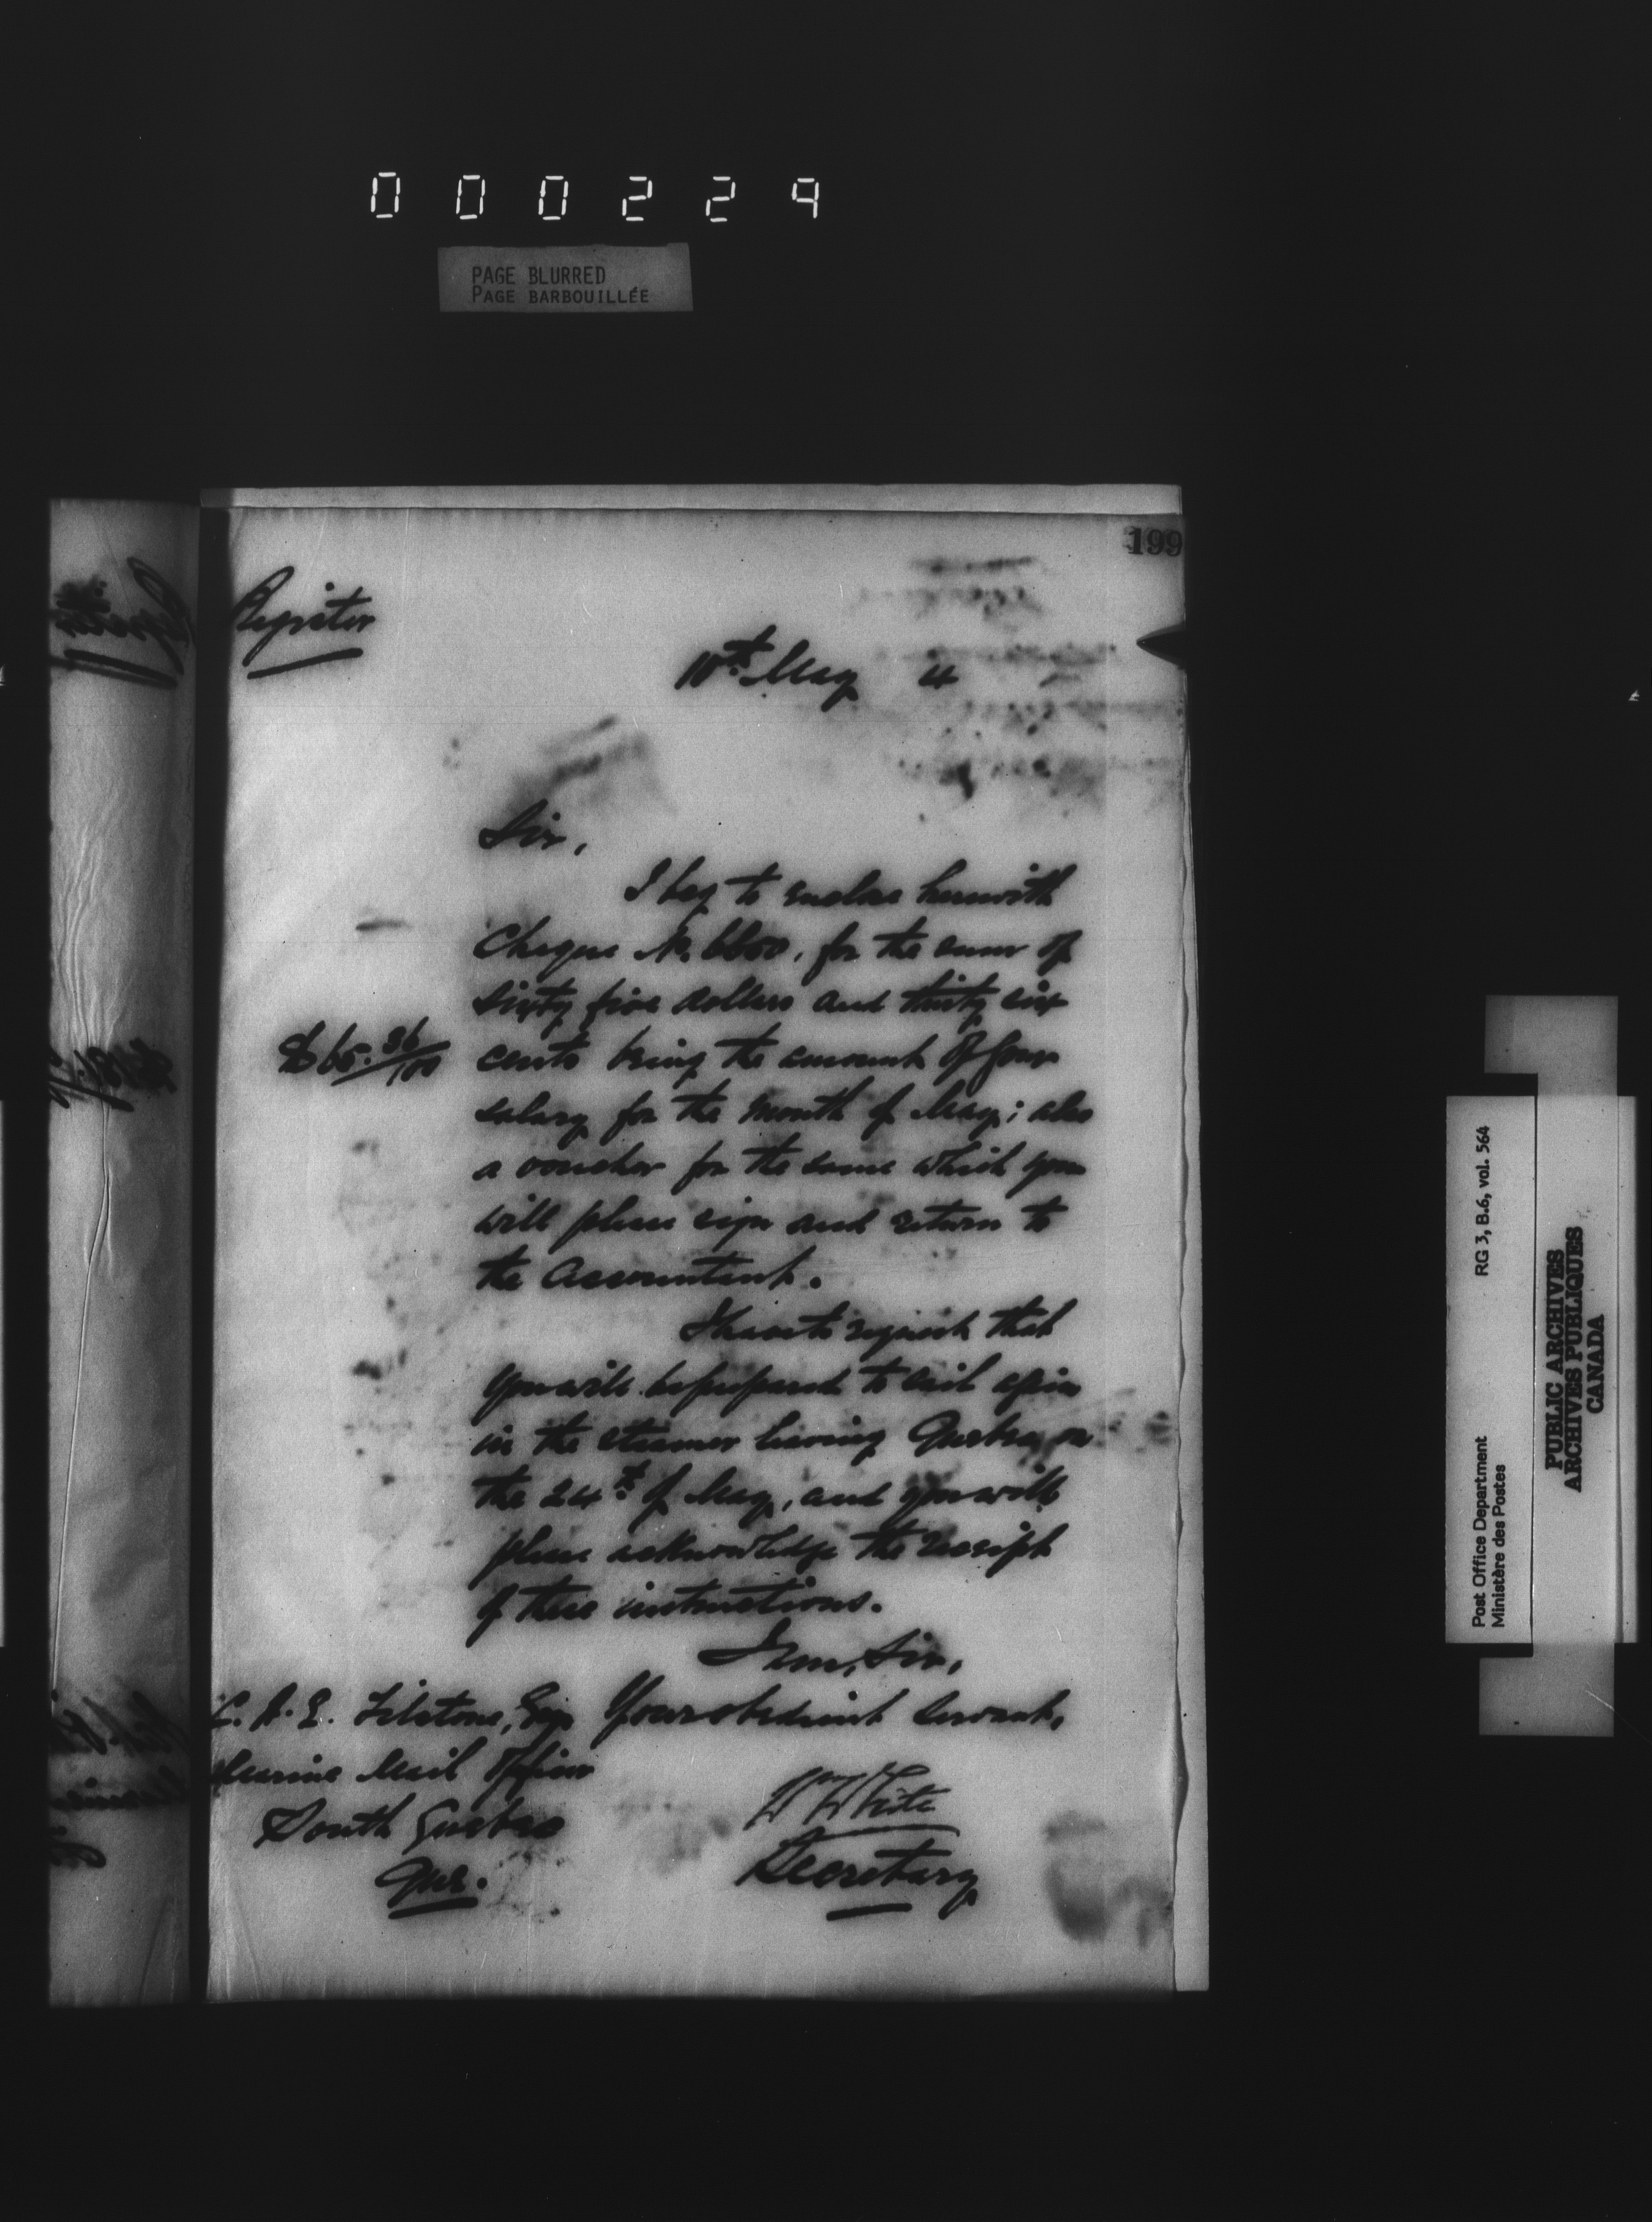 000229
PAGE BLURRED
PAGE BARBOUILLÉE
199
Register
10th May 4
Sir,
I beg to enclose herewith
Cheque No. 6600, for the sum of
Sixty five dollars and thirty six
$65.36/100
cents being the amount of your
salary for the month of May; also
a voucher for the same which you
will please sign and return to
the Accountant.
I have to request that
you will be prepared to sail again
in the steamer leaving Quebec on
the 24th of May, and you will
please acknowledge the receipt
of these instructions.
I am, Sir,
Your obedient Servant,
Wm White
Secretary
Esq
Marine Mail Officer
South Quebec
Que.
Post Office Department RG 3, B.6, vol. 564
Ministère des Postes
PUBLIC ARCHIVES
ARCHIVES PUBLIQUES
CANADA